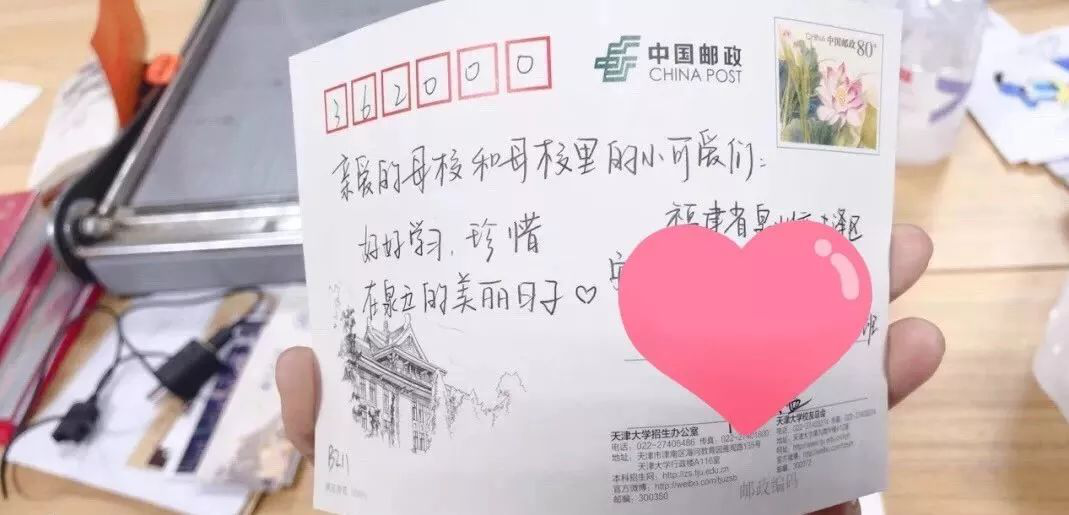 362000
中国邮政
CHINA POST
CHINA 中国邮政 80分
亲爱的母校和母校里的小可爱们:
好好学习,珍惜
在泉五的美丽日子♡
福建省泉州市丰泽区
班
B211
天津大学招生办公室
电话:022-27405486 传真:022-27401800
地址:天津市津南区海河教育园雅观路135号
天津大学行政楼A116室
本科招生网:http://zs.tju.edu.cn
官方微博:http://weibo.com/tjuzsb
邮编:300350
天津大学校友总会
300072
邮政编码